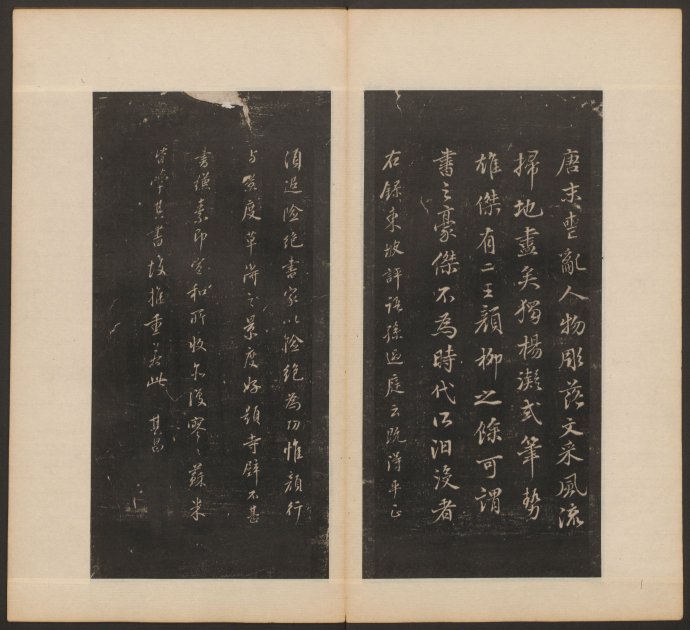 唐末喪亂人物彫落文采風流
掃地盡矣獨楊凝式筆勢
雄傑有二王顏柳之餘可謂
書之豪傑不為時代所汩沒者
右錄東坡評語孫過庭云既得平正
須追險絕書家以險絕為功惟顏行
與景度草得之景度好題寺壁不甚
書縑素即宣和所收亦復寥〻蘇米
皆學其書故推重若此 其昌